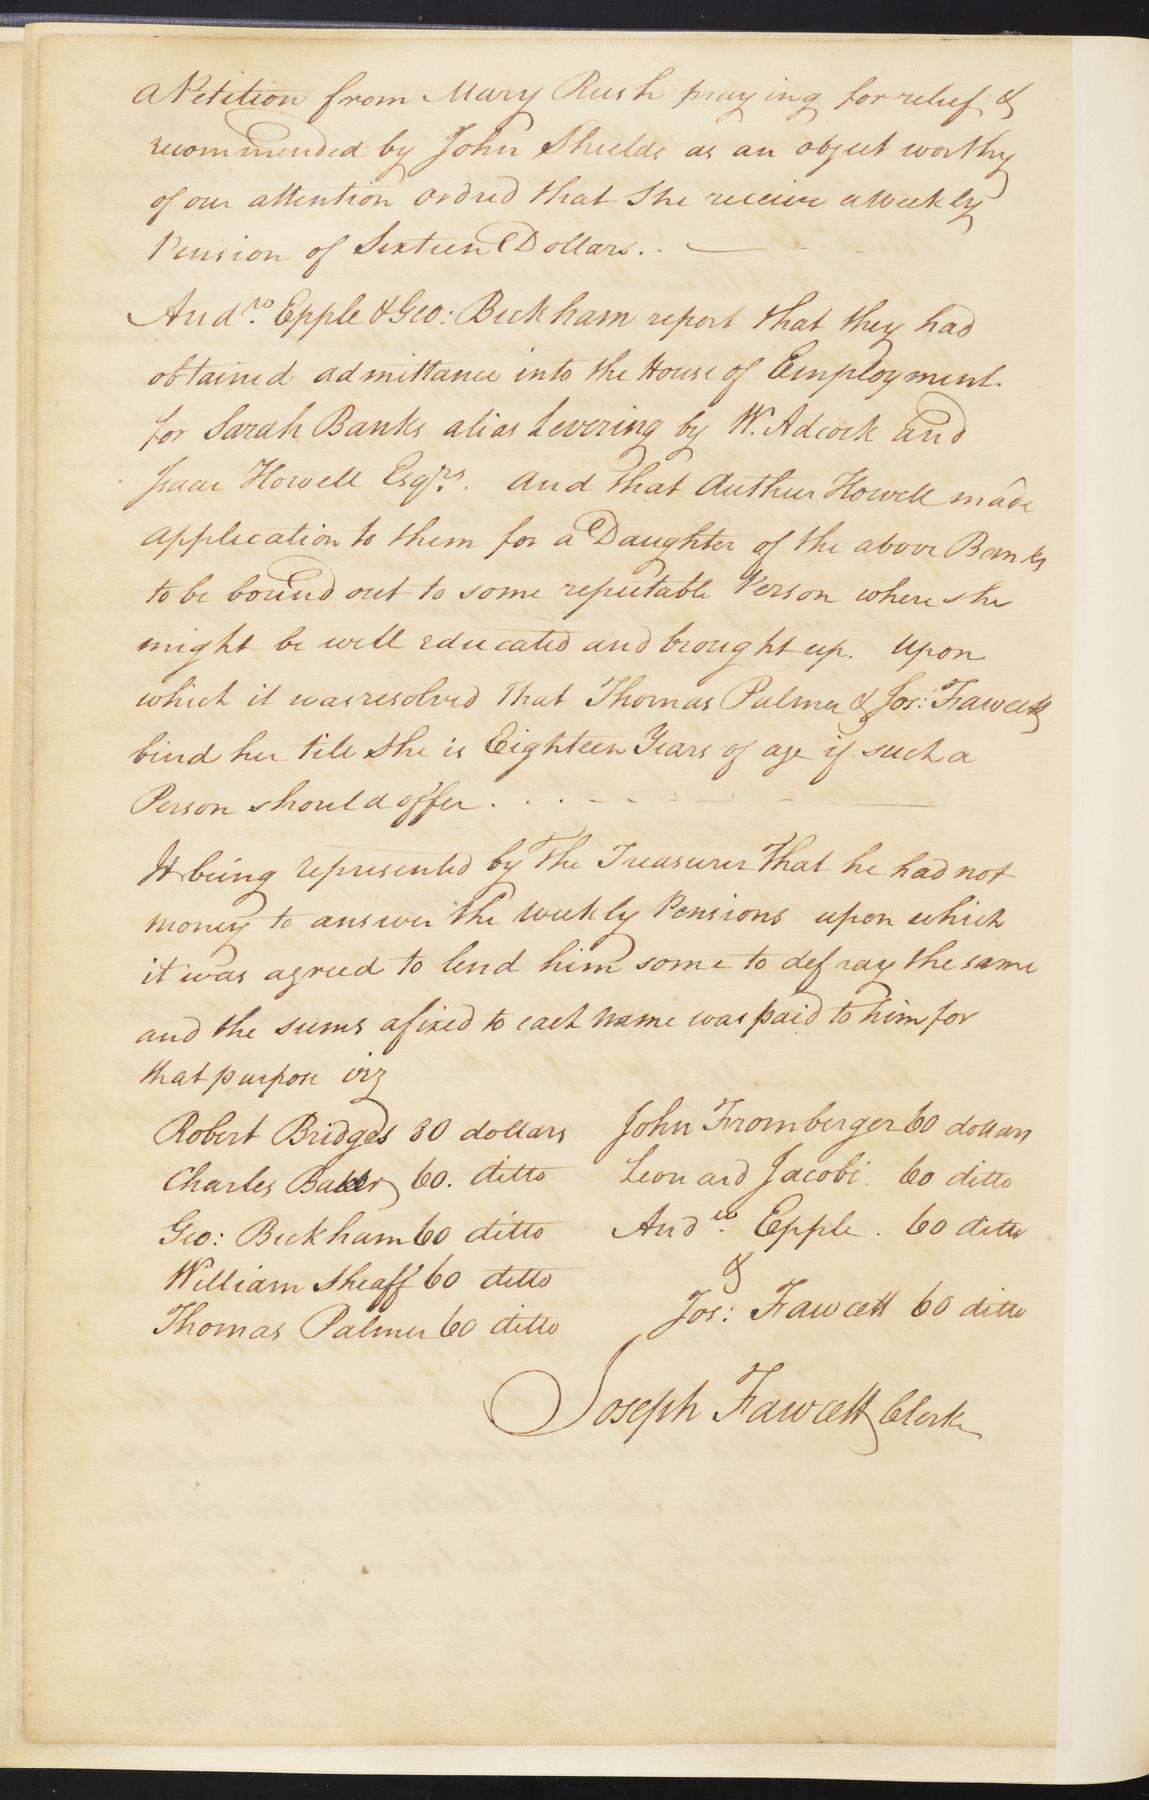 a Petition from Mary Rush praying for relief &
recommended by John Shields as an object worthy
of our attention ordred that She receive a Weekly
Pension of Sixteen Dollars.
And.ro Epple & Geo: Beckham report that they had
obtained admittance into the House of Employment
for Sarah Banks alias Levering by W. Adcock and
Isaac Howell Esqrs. and that Arthur Howell made
application to them for a Daughter of the above Banks
to be bound out to some reputable Person where she
might be well educated and brought up. Upon
which it was resolved that Thomas Palmer & Jos: Fawcett
bind her till She is Eighteen Years of age if such a
Person should offer . . . . - - - - -
It being represented by the Treasurer that he had not
money to answer the weekly Pensions upon which
it was agreed to lend him some to defray the same
and the sums afixed to each name was paid to him for
that purpose viz
Robert Bridges 30 dollars John Fromberger 60 dollars
Charles Baker 60. ditto Leonard Jacobi. 60 ditto
Geo: Beckham 60 ditto And.ro Epple. 60 ditto
William Sheaff 60 ditto &
Thomas Palmer 60 ditto Jos: Fawcett 60 ditto
Joseph Fawcett Clerk